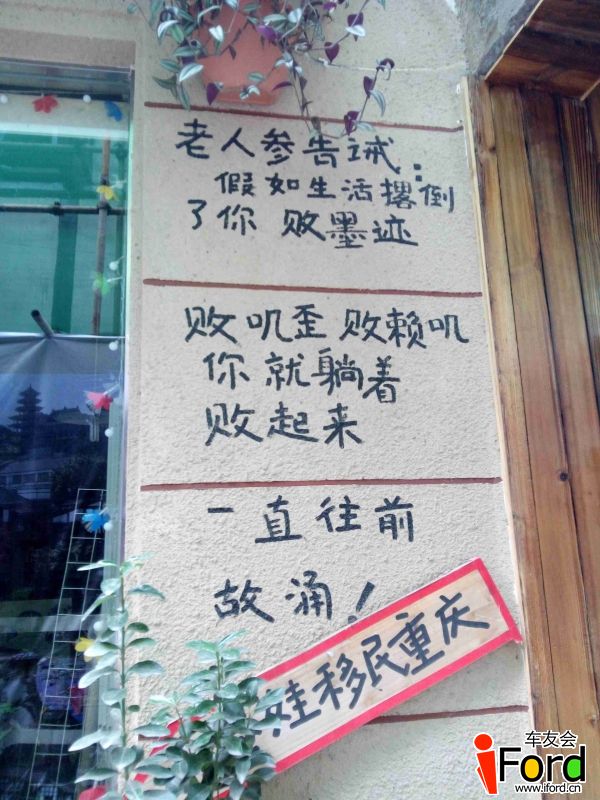 老人参告诫:
假如生活撂倒
了你 败墨迹
败叽歪 败赖叽
你就躺着
败起来
一直往前
故涌!
娃移民重庆
车友会
iFord
www.iford.cn